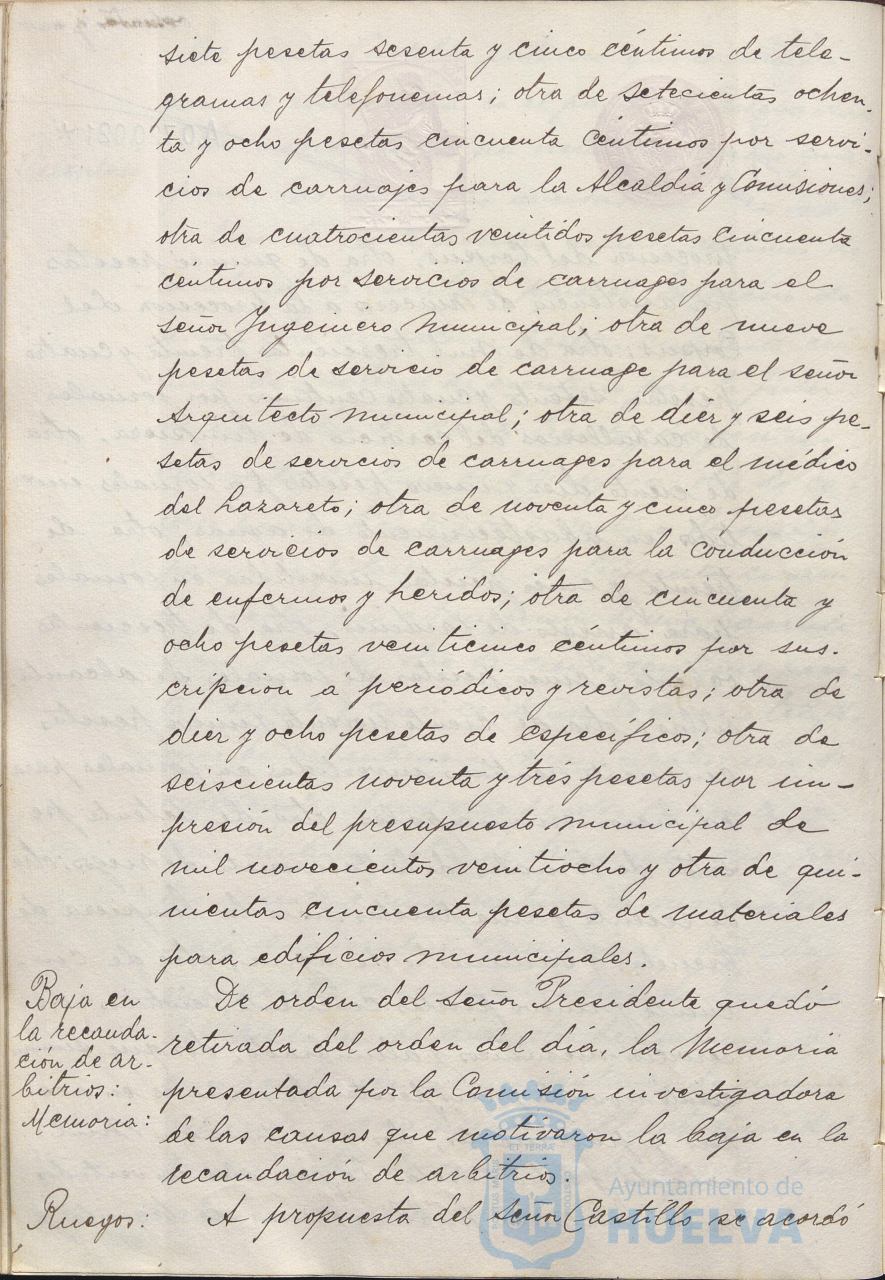 siete pesetas sesenta y cinco céntimos de tele-
gramas y telefonemas; otra de setecientas ochen-
ta y ocho pesetas cincuenta céntimos por servi-
cios de carruajes para la Alcaldía y Comisiones;
otra de cuatrocientas veintidos pesetas cincuenta
céntimos por servicios de carruages para el
señor Ingeniero municipal; otra de nueve
pesetas de servicio de carruage para el señor
Arquitecto municipal; otra de diez y seis pe-
setas de servicios de carruages para el médico
del Lazareto; otra de noventa y cinco pesetas
de servicios de carruages para la conducción
de enfermos y heridos; otra de cincuenta y
ocho pesetas veinticinco céntimos por sus-
cripcion á periódicos y revistas; otra de
diez y ocho pesetas de específicos; otra de
seiscientas noventa y trés pesetas por im-
presión del presupuesto municipal de
mil novecientos veintiocho y otra de qui-
nientas cincuenta pesetas de materiales
para edificios municipales.
Baja en
la recauda-
ción de ar-
bitrios:
Memoria:
De orden del señor Presidente quedó
retirada del orden del día, la Memoria
presentada por la Comisión investigadora
de las causas que motivaron la baja en la
recaudación de arbitrios.
Ruegos:
A propuesta del señor Castillo se acordó
Ayuntamiento de
HUELVA